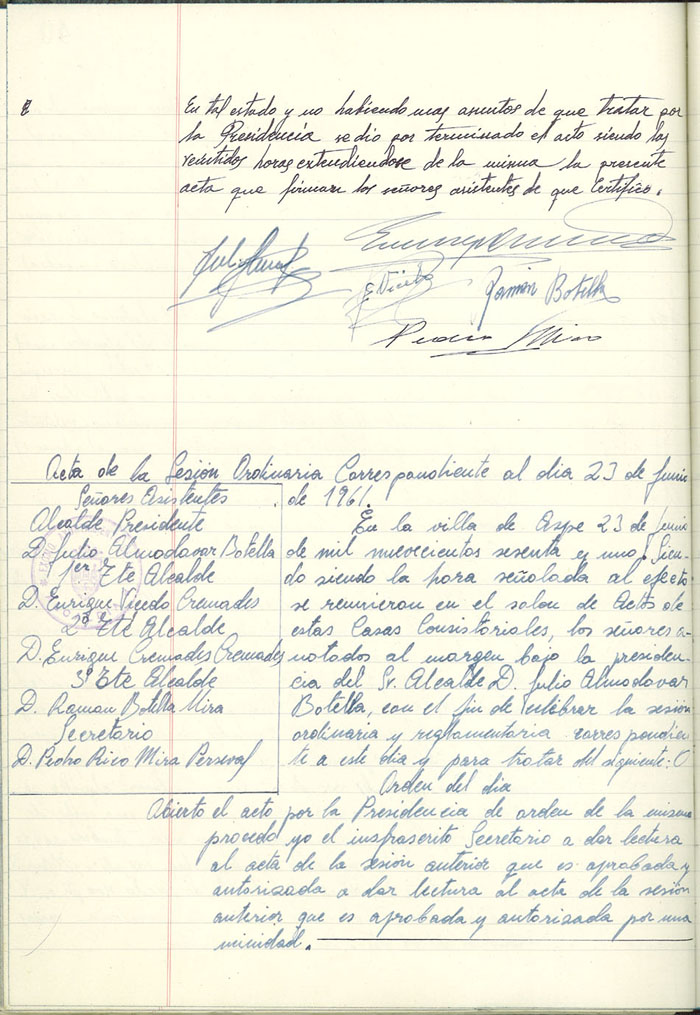 En tal estado y no habiendo mas asuntos de que tratar por
la Presidencia se dio por terminado el acto siendo las
veintidos horas extendiendose de la misma la presente
acta que firman los señores asistentes de que Certifico.
E Vicedo
Ramón Botella
Acta de la Sesión Ordinaria Correspondiente al dia 23 de Junio
de 1961.
Señores Asistentes
Alcalde Presidente
D. Julio Almodovar Botella
1er Tte Alcalde
D. Enrique Vicedo Cremades
2º Tte Alcalde
D. Enrique Cremades Cremades
3º Tte Alcalde
D. Ramon Botella Mira
Secretario
D. Pedro Rico Mira Perseval
En la villa de Aspe 23 de Junio
de mil nuevecientos sesenta y uno. Sien-
do siendo la hora señalada al efecto
se reunieron en el salon de Actos de
estas Casas Consistoriales, los señores a-
notados al margen bajo la presiden-
cia del Sr. Alcalde D. Julio Almodovar
Botella, con el fin de celebrar la sesión
ordinaria y reglamentaria correspondien-
te a este dia y para tratar del siguiente: O
Orden del dia
Abierto el acto por la Presidencia de orden de la misma
procedo yo el insfrascrito Secretario a dar lectura
al acta de la sesión anterior que es aprobada y
autorizada a dar lectura al acta de la sesión
anterior que es aprobada y autorizada por una
nimidad.